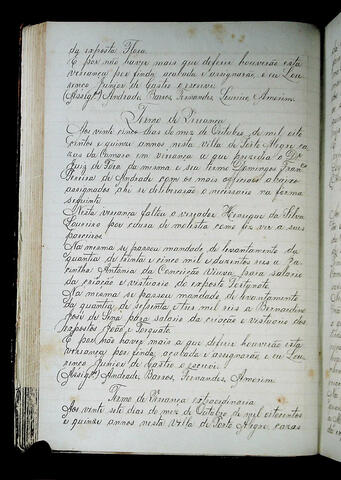 da exposta Flora.
E por não haver mais que deferir houverão esta
vereança por finda, acabada e assignarão, e eu Lou-
renço Junior de Castro o escrevi.
Assigdos Andrade, Barros, Fernandes, Loureiro, Amorim.
Termo de Vereança
Aos vinte cinco dias do mez de Outubro de mil oito
centos e quinze annos nesta villa de Porto Alegre ca-
zas da Camara em vereança a que prezidio o Dr.
Luiz de Fóra da mesma e seu termo Domingos Fran.
Pereira de Andrade com os mais officiaes abaixo
assignados ahi se deliberarão o necessario na forma
seguinte.
Nesta vereança faltou o vereador Henrique da Silva
Loureiro por cauza de molestia como fez ver a seus
parceiros.
Na mesma se passou mandado de levantamento da
quantia de trinta e cinco mil e duzentos reis a Ja-
cintha Antonia da Conceição Viuva para salario
da criação e vestuario do exposto Fortunato.
Na mesma se passou mandado de levantamento
da quantia de sessenta e tres mil reis a Bernardino
José de Sena para salario da criação e vestuario dos
expostos João e Torquato.
E por não haver mais a que deferir houverão esta
vereança por finda, acabada e assignarão, e eu Lou-
renço Junior de Castro o escrevi.
Assigdos Andrade, Barros, Fernandes, Amorim
Termo de Vereança extraordinaria
Aos vinte sete dias do mez de Outubro de mil oitocentos
e quinze annos nesta villa de Porto Alegre, cazas